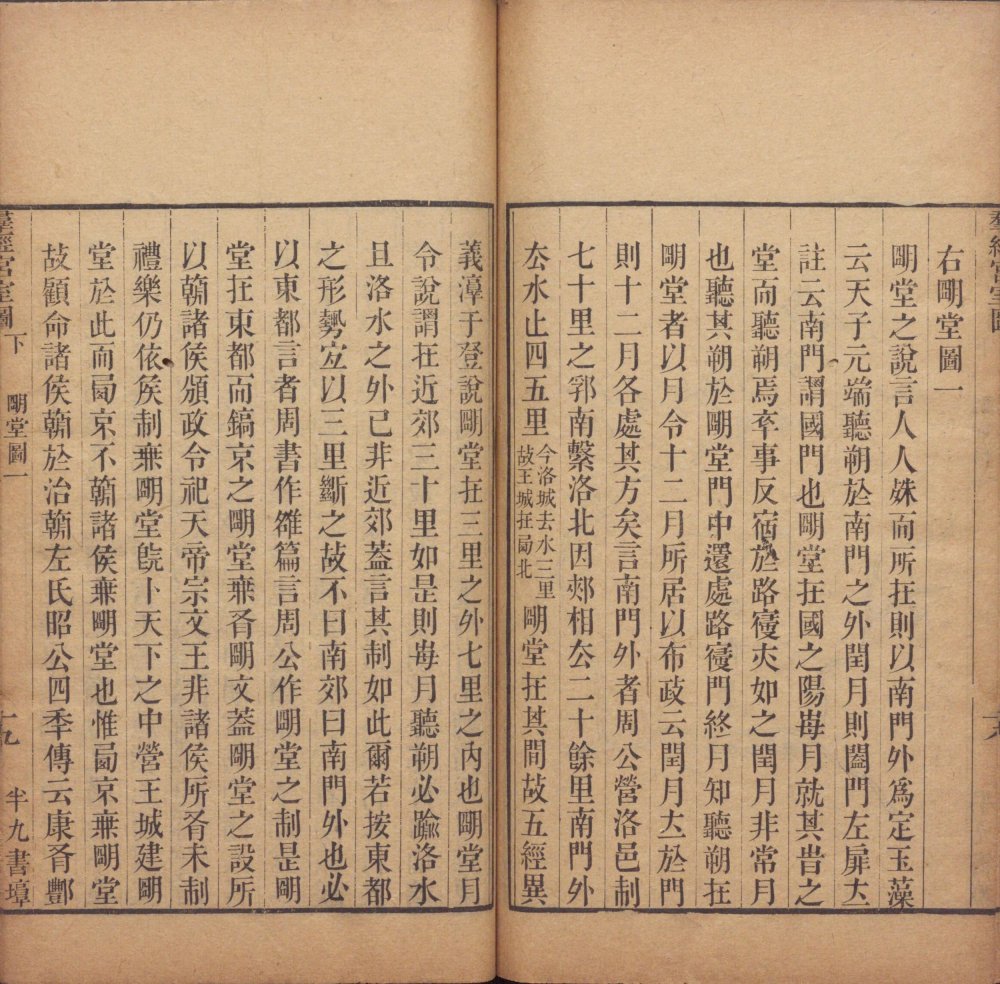 羣經宮室圖
右朙堂圖一
朙堂之說言人人姝而所扗則以南門外爲定玉藻
云天子元端聽朔於南門之外閏月則闔門左扉立
註云南門謂國門也朙堂扗國之陽每月就其旹之
堂而聽朔焉卒事反宿於路寑亦如之閏月非常月
也聽其朔於朙堂門中還處路寑門終月知聽朔扗
朙堂者以月令十二月所居以布政云閏月立於門
則十二月各處其方矣言南門外者周公營洛邑制
七十里之郛南繫洛北因郟相厺二十餘里南門外
厺水止四五里今洛城去水三里故王城扗局北朙堂扗其間故五經異
義淳于登說朙堂扗三里之外七里之內也朙堂月
令說謂扗近郊三十里如是則每月聽朔必踰洛水
且洛水之外已非近郊蓋言其制如此爾若按東都
之形勢宜以三里斷之故不曰南郊曰南門外也必
以東都言者周書作雒篇言周公作朙堂之制是朙
堂扗東都而鎬京之朙堂無肴朙文蓋朙堂之設所
以朝諸侯頒政令祀天帝宗文王非諸侯所肴未制
禮樂仍依侯制無朙堂旣卜天下之中營王城建朙
堂於此而局京不朝諸侯無朙堂也惟局京無朙堂
故顧命諸侯朝於治朝左氏昭公四季傳云康肴酆
羣經宮室圖 下 朙堂圖一 十九 半九書塾